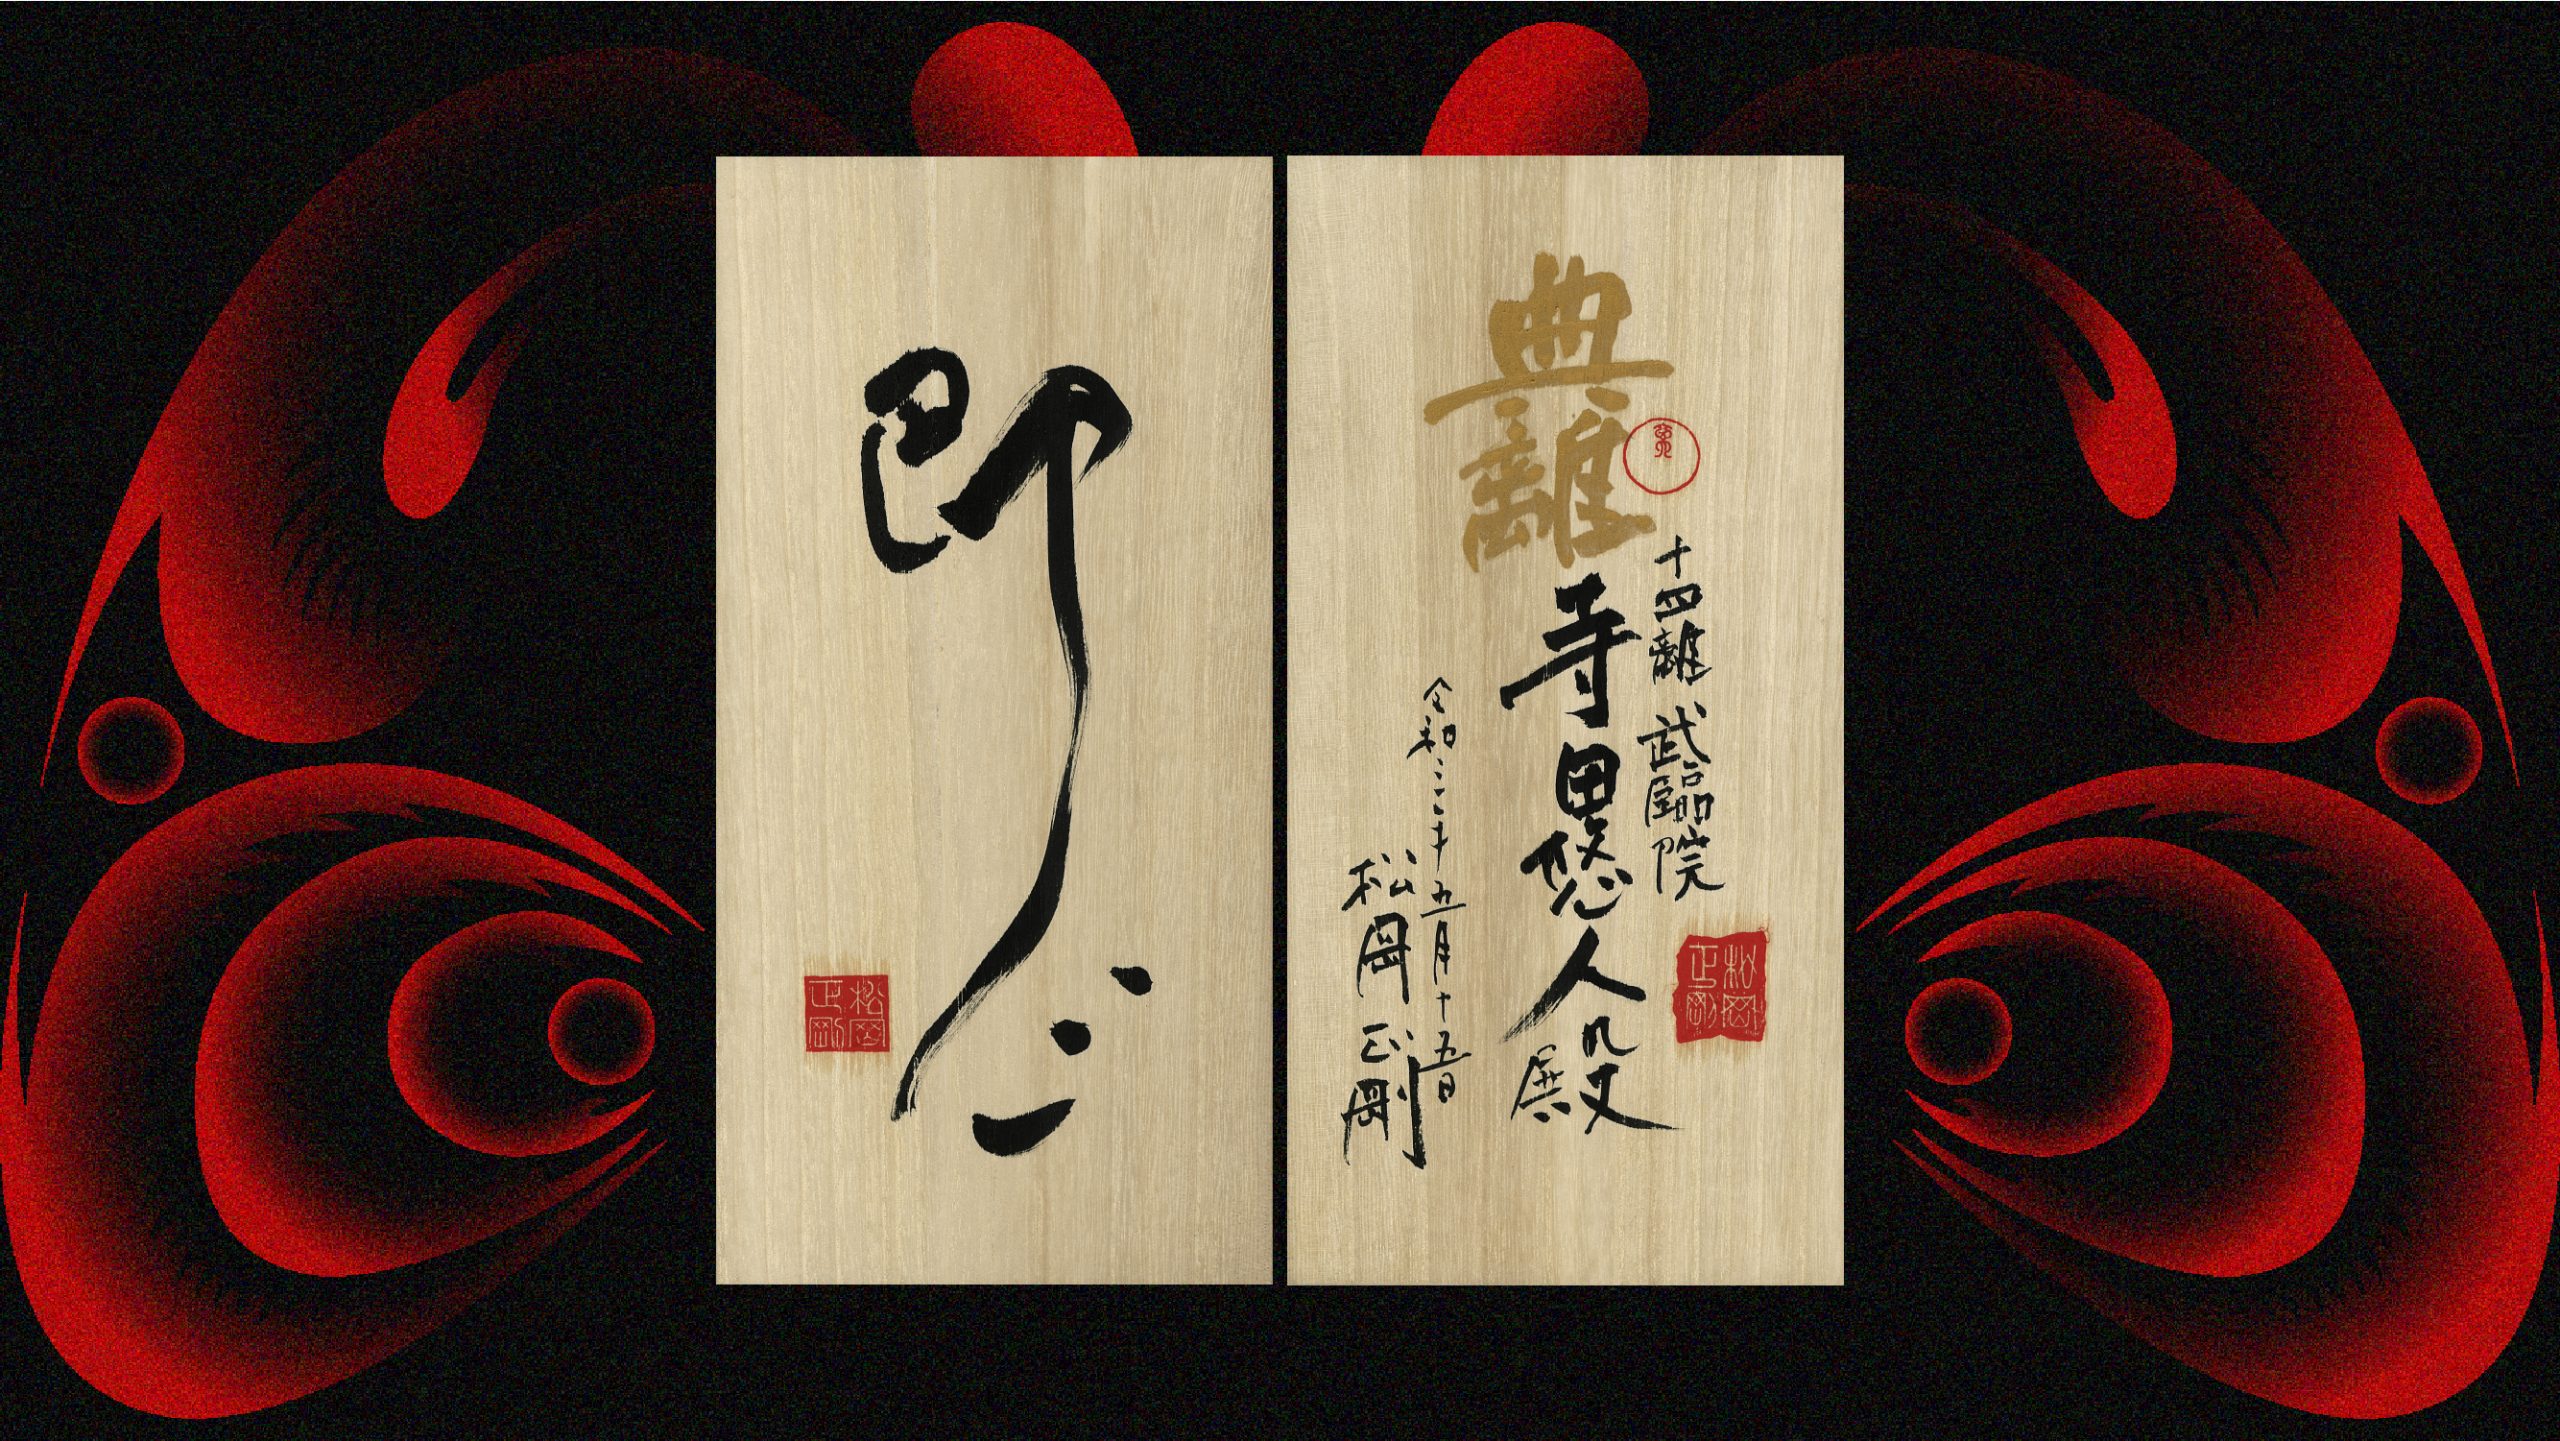 即
松岡
正剛
典離
十四離 武臨院
寺田悠人殿
令和三年五月十五日
松岡正剛
松岡
正剛